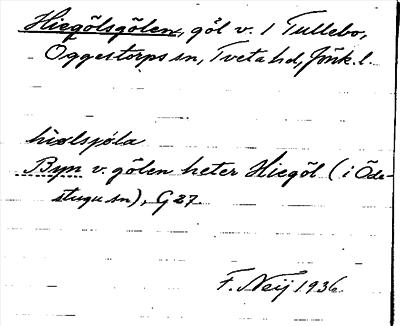 Hiegölsgölen, göl v. 1 Tullebo,
Öggestorps sn, Tveta hd, Jönk. l.
hìølsjọ́la
Byn v. gölen heter Hiegöl (i Öde-
stugu sn), G 27
F. Neij 1936